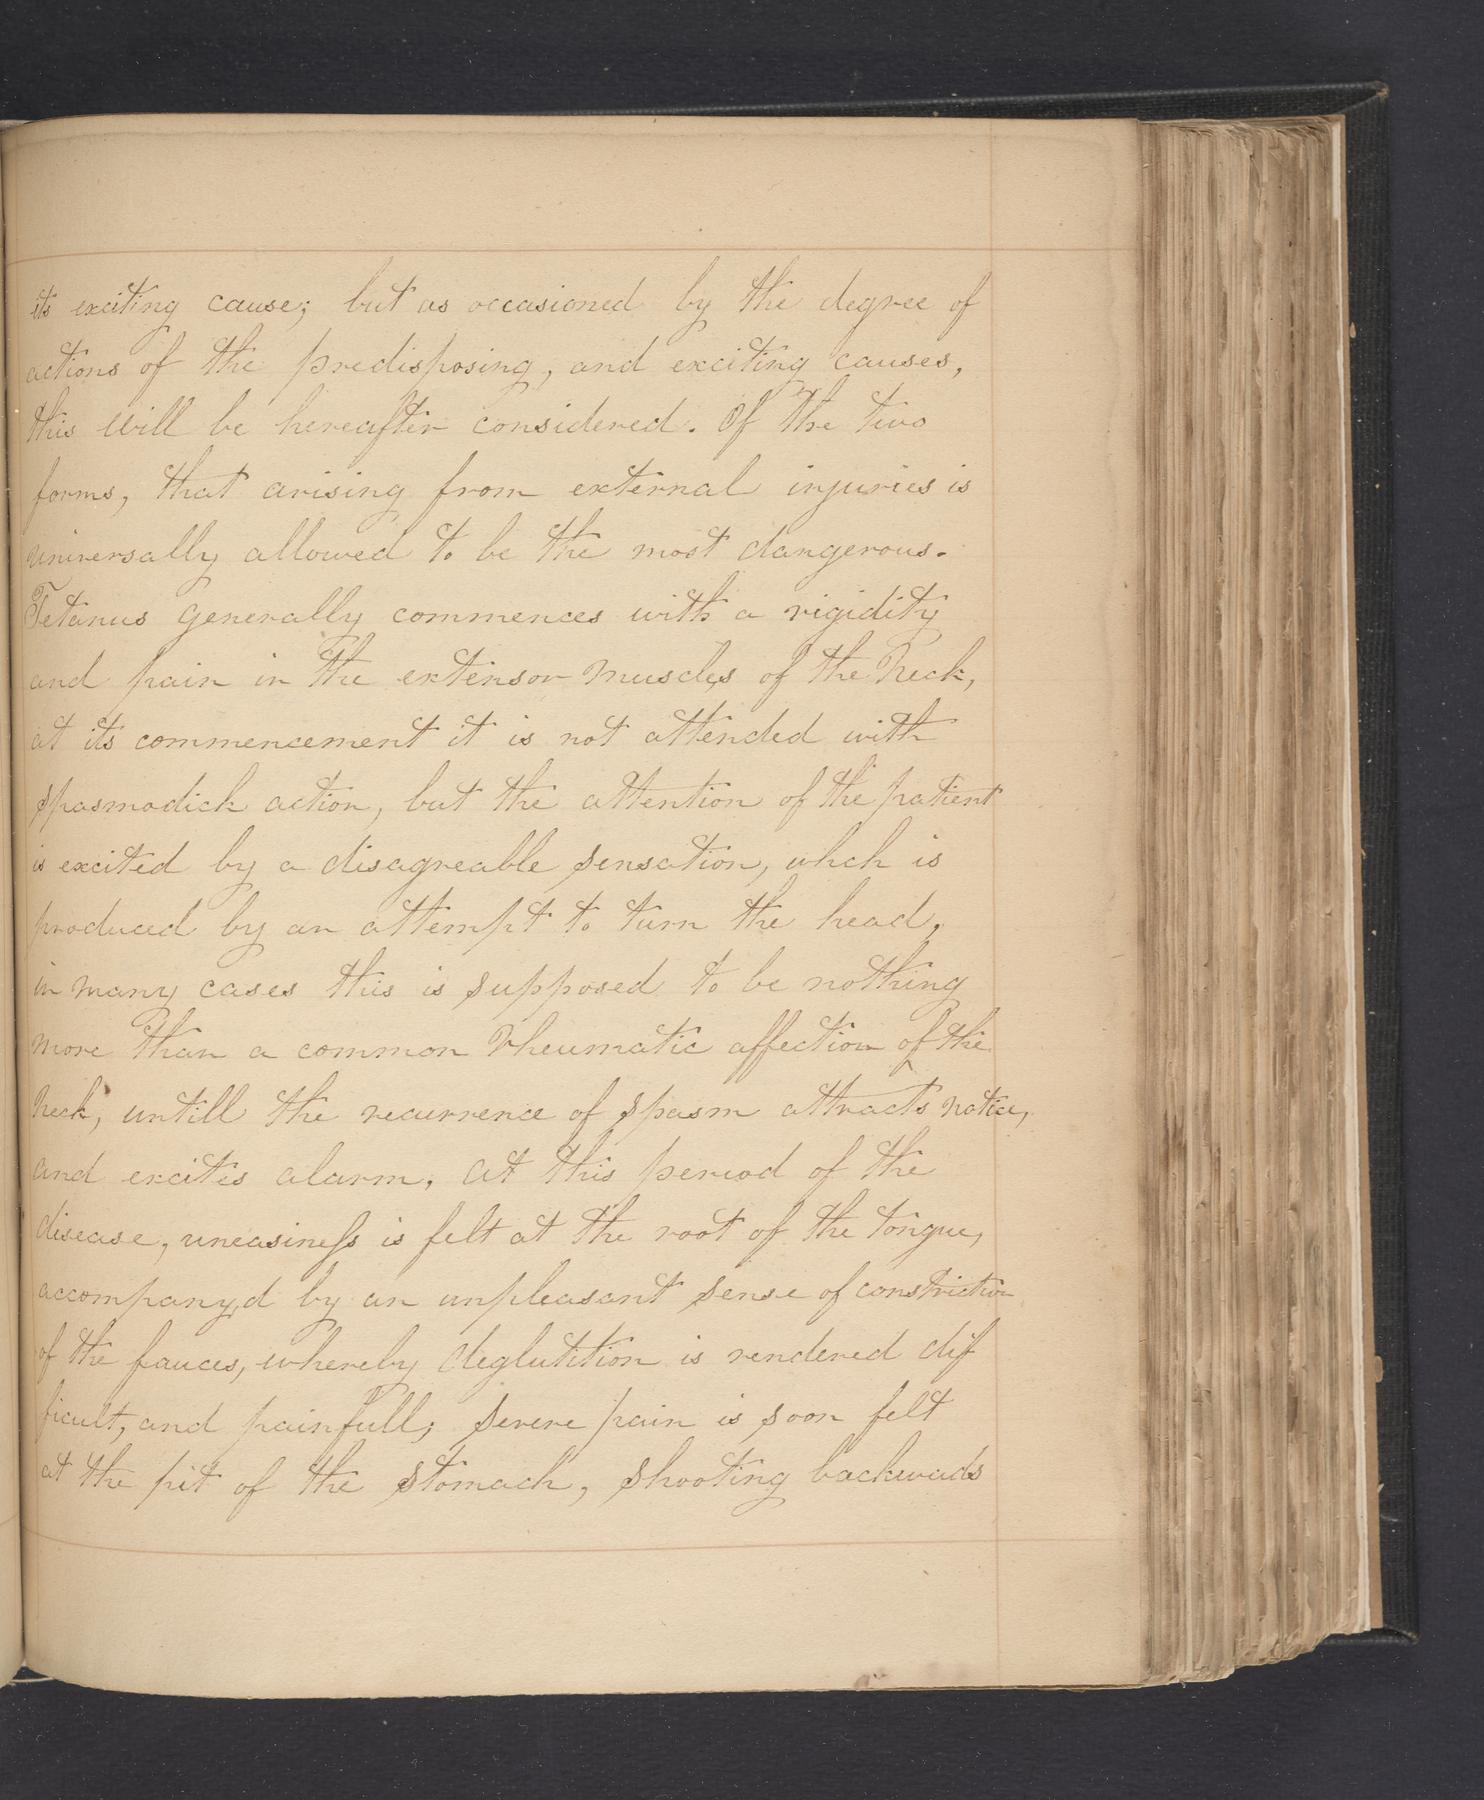 its exciting cause; but as occasioned by the degree of
actions of the predisposing, and exciting causes,
this will be hereafter considered. Of the two
forms, that arising from external injuries is
universally allowed to be the most dangerous.
Tetanus generally commences with a rigidity
and pain in the extensor muscles of the Neck,
at its commencement it is not attended with
spasmodick action, but the attention of the patient
is excited by a disagreable sensation, whch is
produced by an attempt to turn the head,
in many cases this is supposed to be nothing
more than a common Rheumatic affection of the
Neck, untill the recurrence of spasm attracts notice,
and excites alarm, at this period of the
disease, uneasineſs is felt at the root of the tongue,
accompany,d by an unpleasant sense of constriction
of the fauces, whereby deglutition is rendered dif
ficult, and painfull; severe pain is soon felt
at the pit of the stomach, shooting backwads